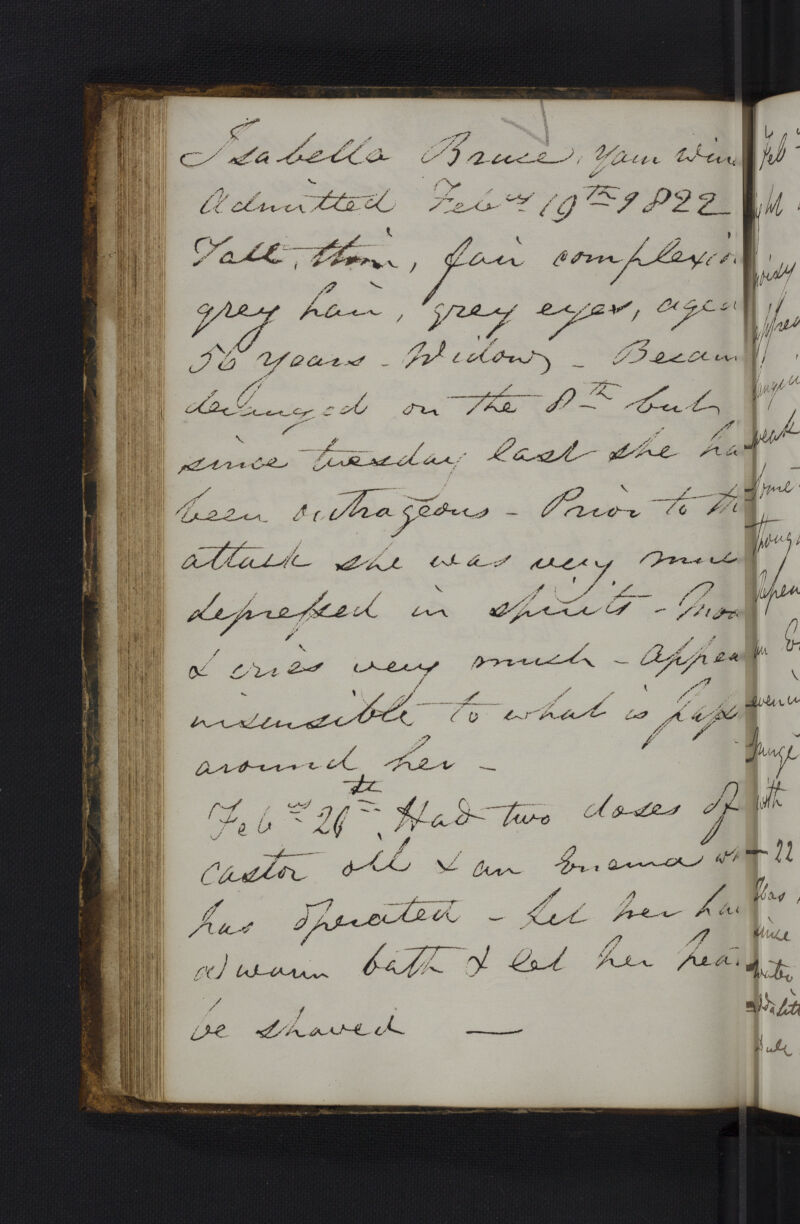 Isabella Bruce, Yarn win
Admitted Feby 19th 1822
Tall, thin, fair complexio
grey hair, grey eyes, aged
56 years - Widow - Becam
deranged on the 8th but
since tuesday last she ha
been outrageous - Prior to th
attack she was very muc
depressed in spirits - Moa
& cries very much - Appea
insensible to what is pass
around her -
Feby 20th Had two doses of
castor oil & an Enema wh
has operated - Let her hav
a warm bath & let her head
be shaved —
Feb
ght
noisy
appea
weak
some
though
Repea
an E
evenin
with
- 22
Has
since
water